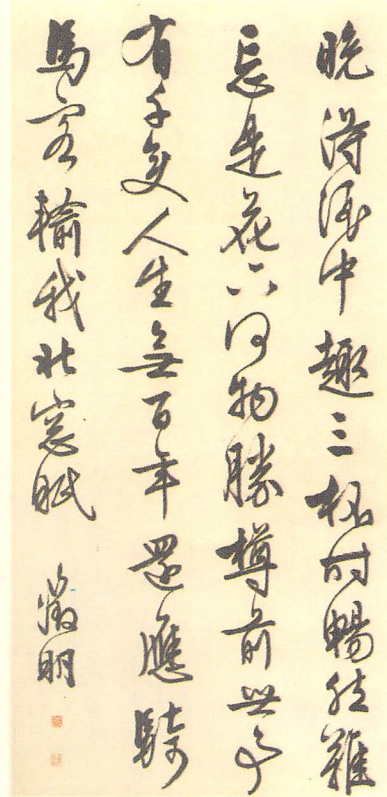 晚得酒中趣三杯时暢然難
忘是花下何物勝樽前世事
有千变人生無百年還應騎
馬客輸我北窓眠 徵明